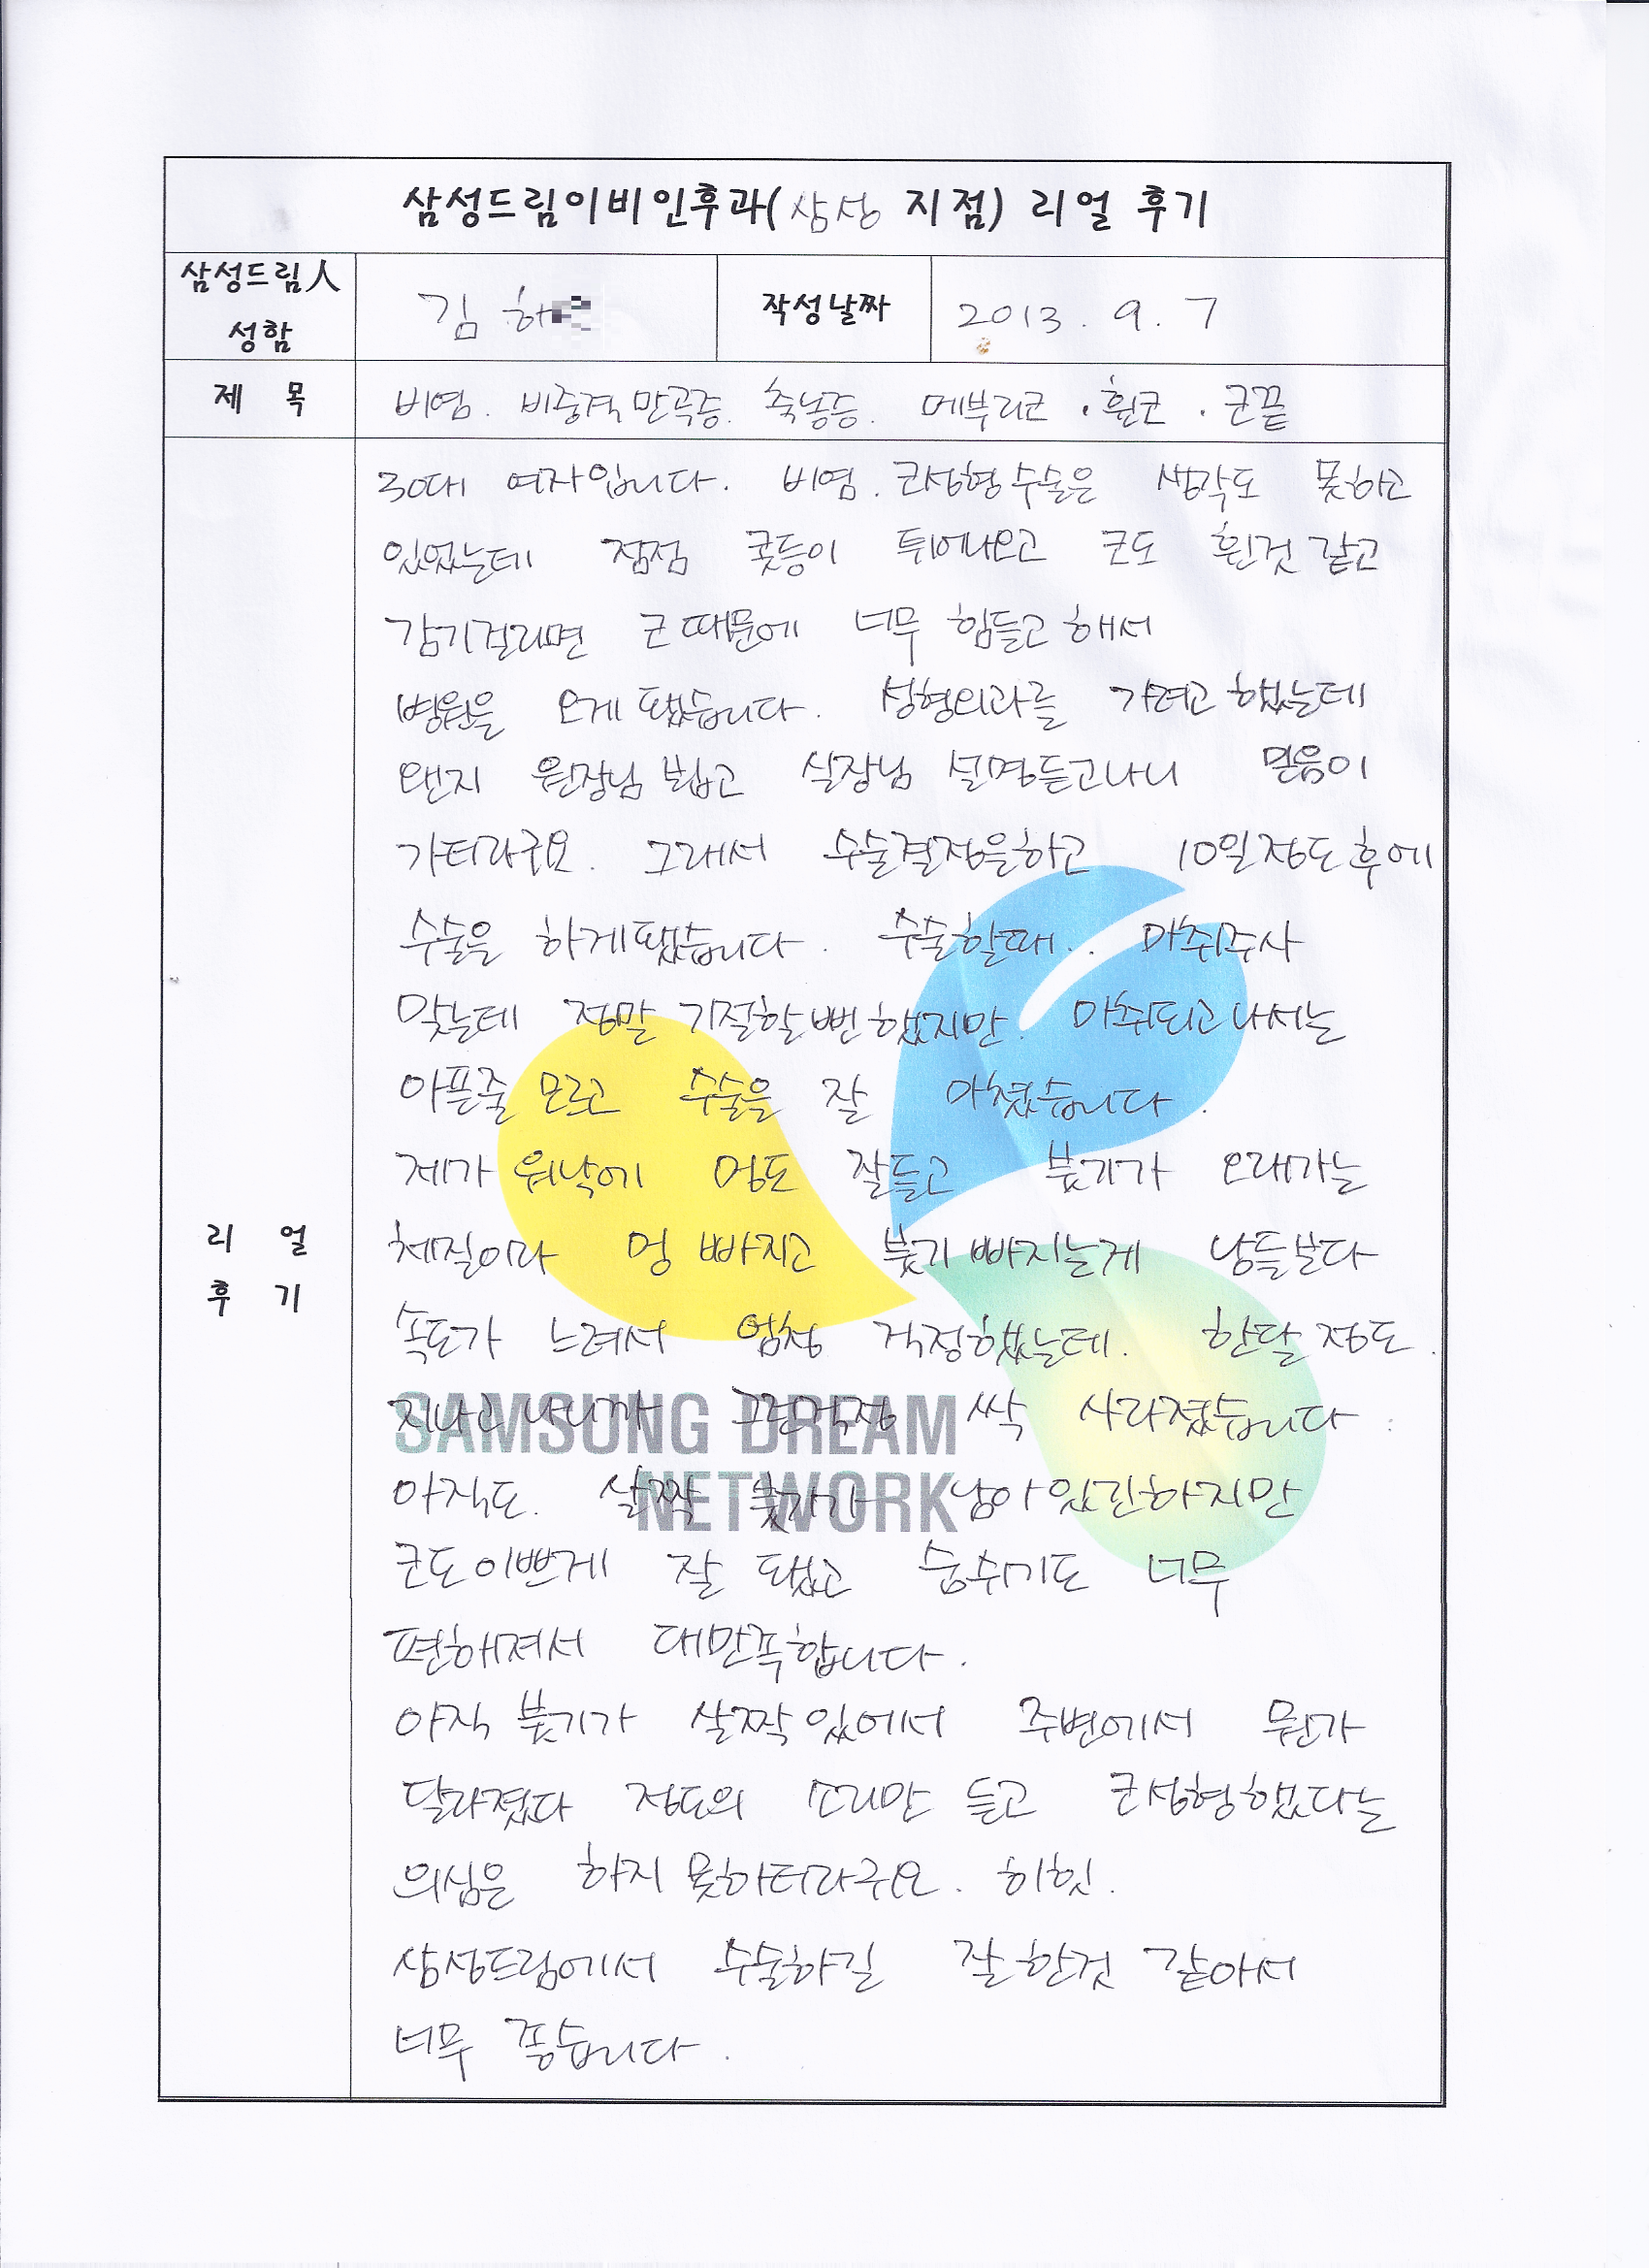 삼성드림이비인후과(삼성 지점) 리얼 후기
삼성드림人 성함
김 하
작성날짜
2013. 9. 7
제 목
비염. 비중격만곡증. 축농증. 메부리코 · 휜코 · 코끝
리 얼
후 기
30대 여자입니다. 비염. 코성형수술은 생각도 못하고
있었는데 점점 콧등이 튀어나오고 코도 휜것 같고
감기걸리면 코 때문에 너무 힘들고 해서
병원을 오게 됐습니다. 성형외과를 가려고 했는데
왠지 원장님 뵙고 실장님 설명듣고나니 믿음이
가더라구요. 그래서 수술결정을하고 10일정도 후에
수술을 하게됐습니다. 수술할때.. 마취주사
맞는데 정말 기절할뻔 했지만. 마취되고 나서는
아픈줄 모르고 수술을 잘 마쳤습니다.
제가 워낙에 멍도 잘들고 붓기가 오래가는
체질이라 멍 빠지고 붓기 빠지는게 남들보다
속도가 느려서 엄청 걱정했는데. 한달 정도.
지나고 나니까 그런걱정 싹 사라졌습니다.
아직도. 살짝 붓기가 남아 있긴하지만
코도 이쁘게 잘 됐고 숨쉬기도 너무
편해져서 대만족합니다.
아직 붓기가 살짝 있에서 주변에서 뭔가
달라졌다 정도의 소리만 듣고 코성형했다는
의심은 하지 못하더라구요. 히힛.
삼성드림에서 수술하길 잘 한것 같아서
너무 좋습니다.
SAMSUNG DREAM
NETWORK